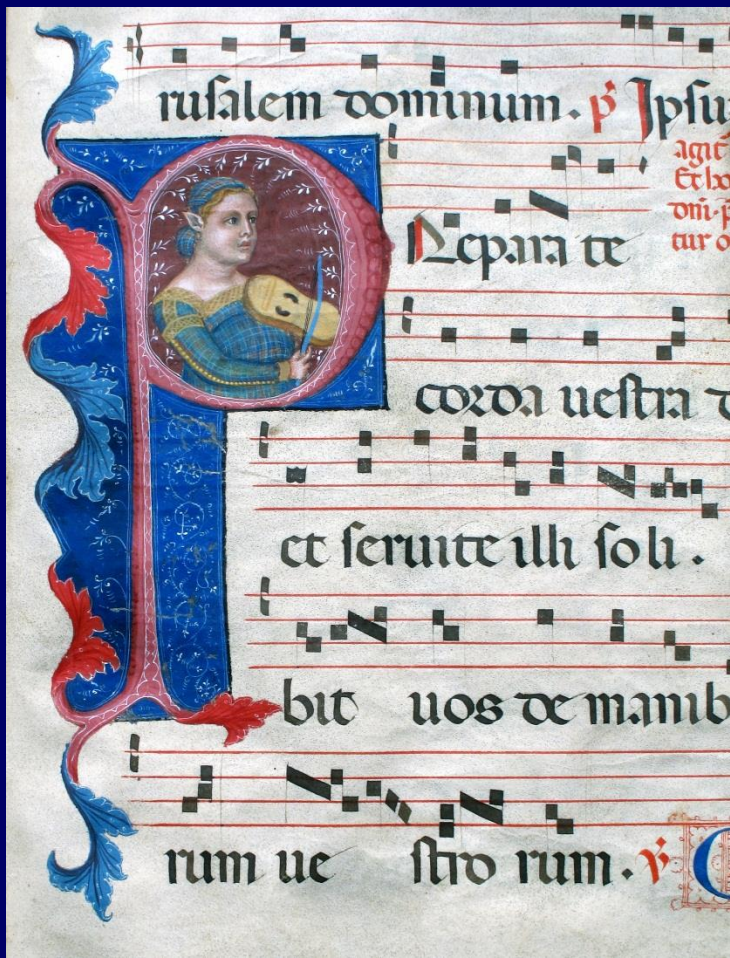 ruſalem dominum. p̃ Ipſu
agit
Et ho
P Repara te
corda ueſtra d
et ſeruite illi ſoli .
bit uos de manib
rum ue ſtro rum. ℣